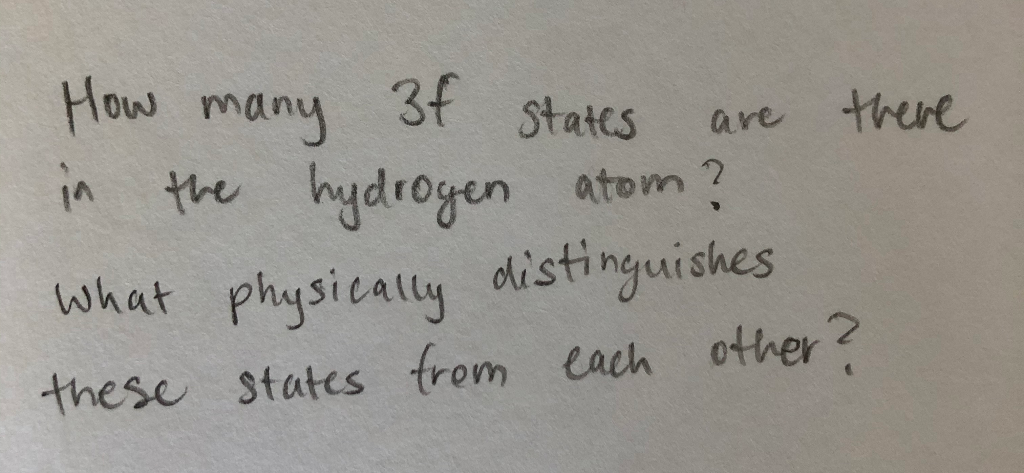 How many 3f states are there
in the hydrogen atom?
What physically distinguishes
these states from each other?